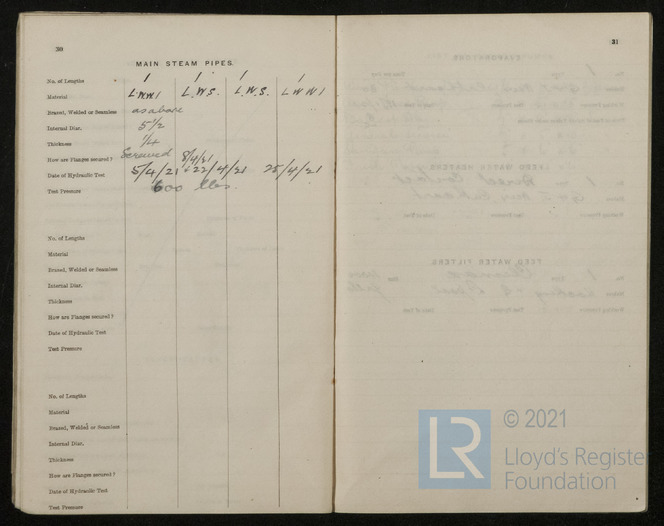 30
MAIN STEAM PIPES.
No. of Lengths 1 1 1 1
Material L.W.W.I L.W.S. L.W.S. L W W I
Brazed, Welded or Seamless as above
Internal Diar. 5 1/2
Thickness 1/4
How are Flanges secured? Screwed 8/4/21
Date of Hydraulic Test 5/4/21 + 22/4/21 25/4/21
Test Pressure 600 lbs.
No. of Lengths
Material
Brazed, Welded or Seamless
Internal Diar.
Thickness
How are Flanges secured?
Date of Hydraulic Test
Test Pressure
No. of Lengths
Material
Brazed, Welded or Seamless
Internal Diar.
Thickness
How are Flanges secured?
Date of Hydraulic Test
Test Pressure
31
LR
© 2021
Lloyd's Register
Foundation